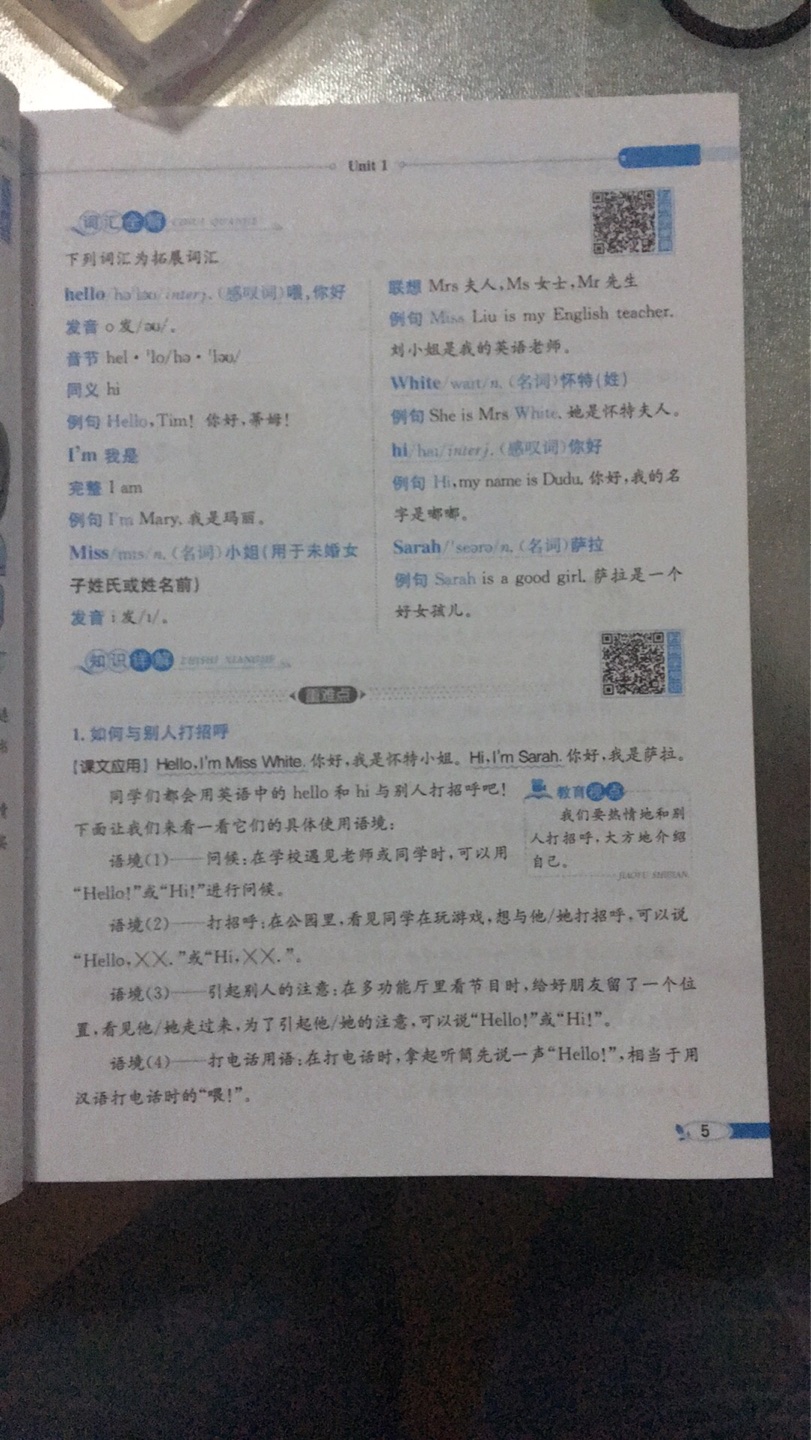 Unit 1
词汇全解 CIHUI QUANJIE
下列词汇为拓展词汇
hello/həˈləʊ/interj.(感叹词)喂,你好
发音 o 发/əʊ/。
音节 hel·ˈlo/hə·ˈləʊ/
同义 hi
例句 Hello,Tim! 你好,蒂姆!
I'm 我是
完整 I am
例句 I'm Mary. 我是玛丽。
Miss/mɪs/n.(名词)小姐(用于未婚女
子姓氏或姓名前)
发音 i 发/ɪ/。
联想 Mrs 夫人,Ms 女士,Mr 先生
例句 Miss Liu is my English teacher.
刘小姐是我的英语老师。
White/waɪt/n.(名词)怀特(姓)
例句 She is Mrs White. 她是怀特夫人。
hi/haɪ/interj.(感叹词)你好
例句 Hi,my name is Dudu. 你好,我的名
字是嘟嘟。
Sarah/ˈseərə/n.(名词)萨拉
例句 Sarah is a good girl. 萨拉是一个
好女孩儿。
知识详解 ZHISHI XIANGJIE
重难点
1. 如何与别人打招呼
[课文应用] Hello,I'm Miss White. 你好,我是怀特小姐。Hi,I'm Sarah. 你好,我是萨拉。
同学们都会用英语中的 hello 和 hi 与别人打招呼吧!
下面让我们来看一看它们的具体使用语境:
语境(1)——问候:在学校遇见老师或同学时,可以用
“Hello!”或“Hi!”进行问候。
教育视点
我们要热情地和别
人打招呼,大方地介绍
自己。
JIAOYU SHIDIAN
语境(2)——打招呼:在公园里,看见同学在玩游戏,想与他/她打招呼,可以说
“Hello,××.”或“Hi,××.”。
语境(3)——引起别人的注意:在多功能厅里看节目时,给好朋友留了一个位
置,看见他/她走过来,为了引起他/她的注意,可以说“Hello!”或“Hi!”。
语境(4)——打电话用语:在打电话时,拿起听筒先说一声“Hello!”,相当于用
汉语打电话时的“喂!”。
5